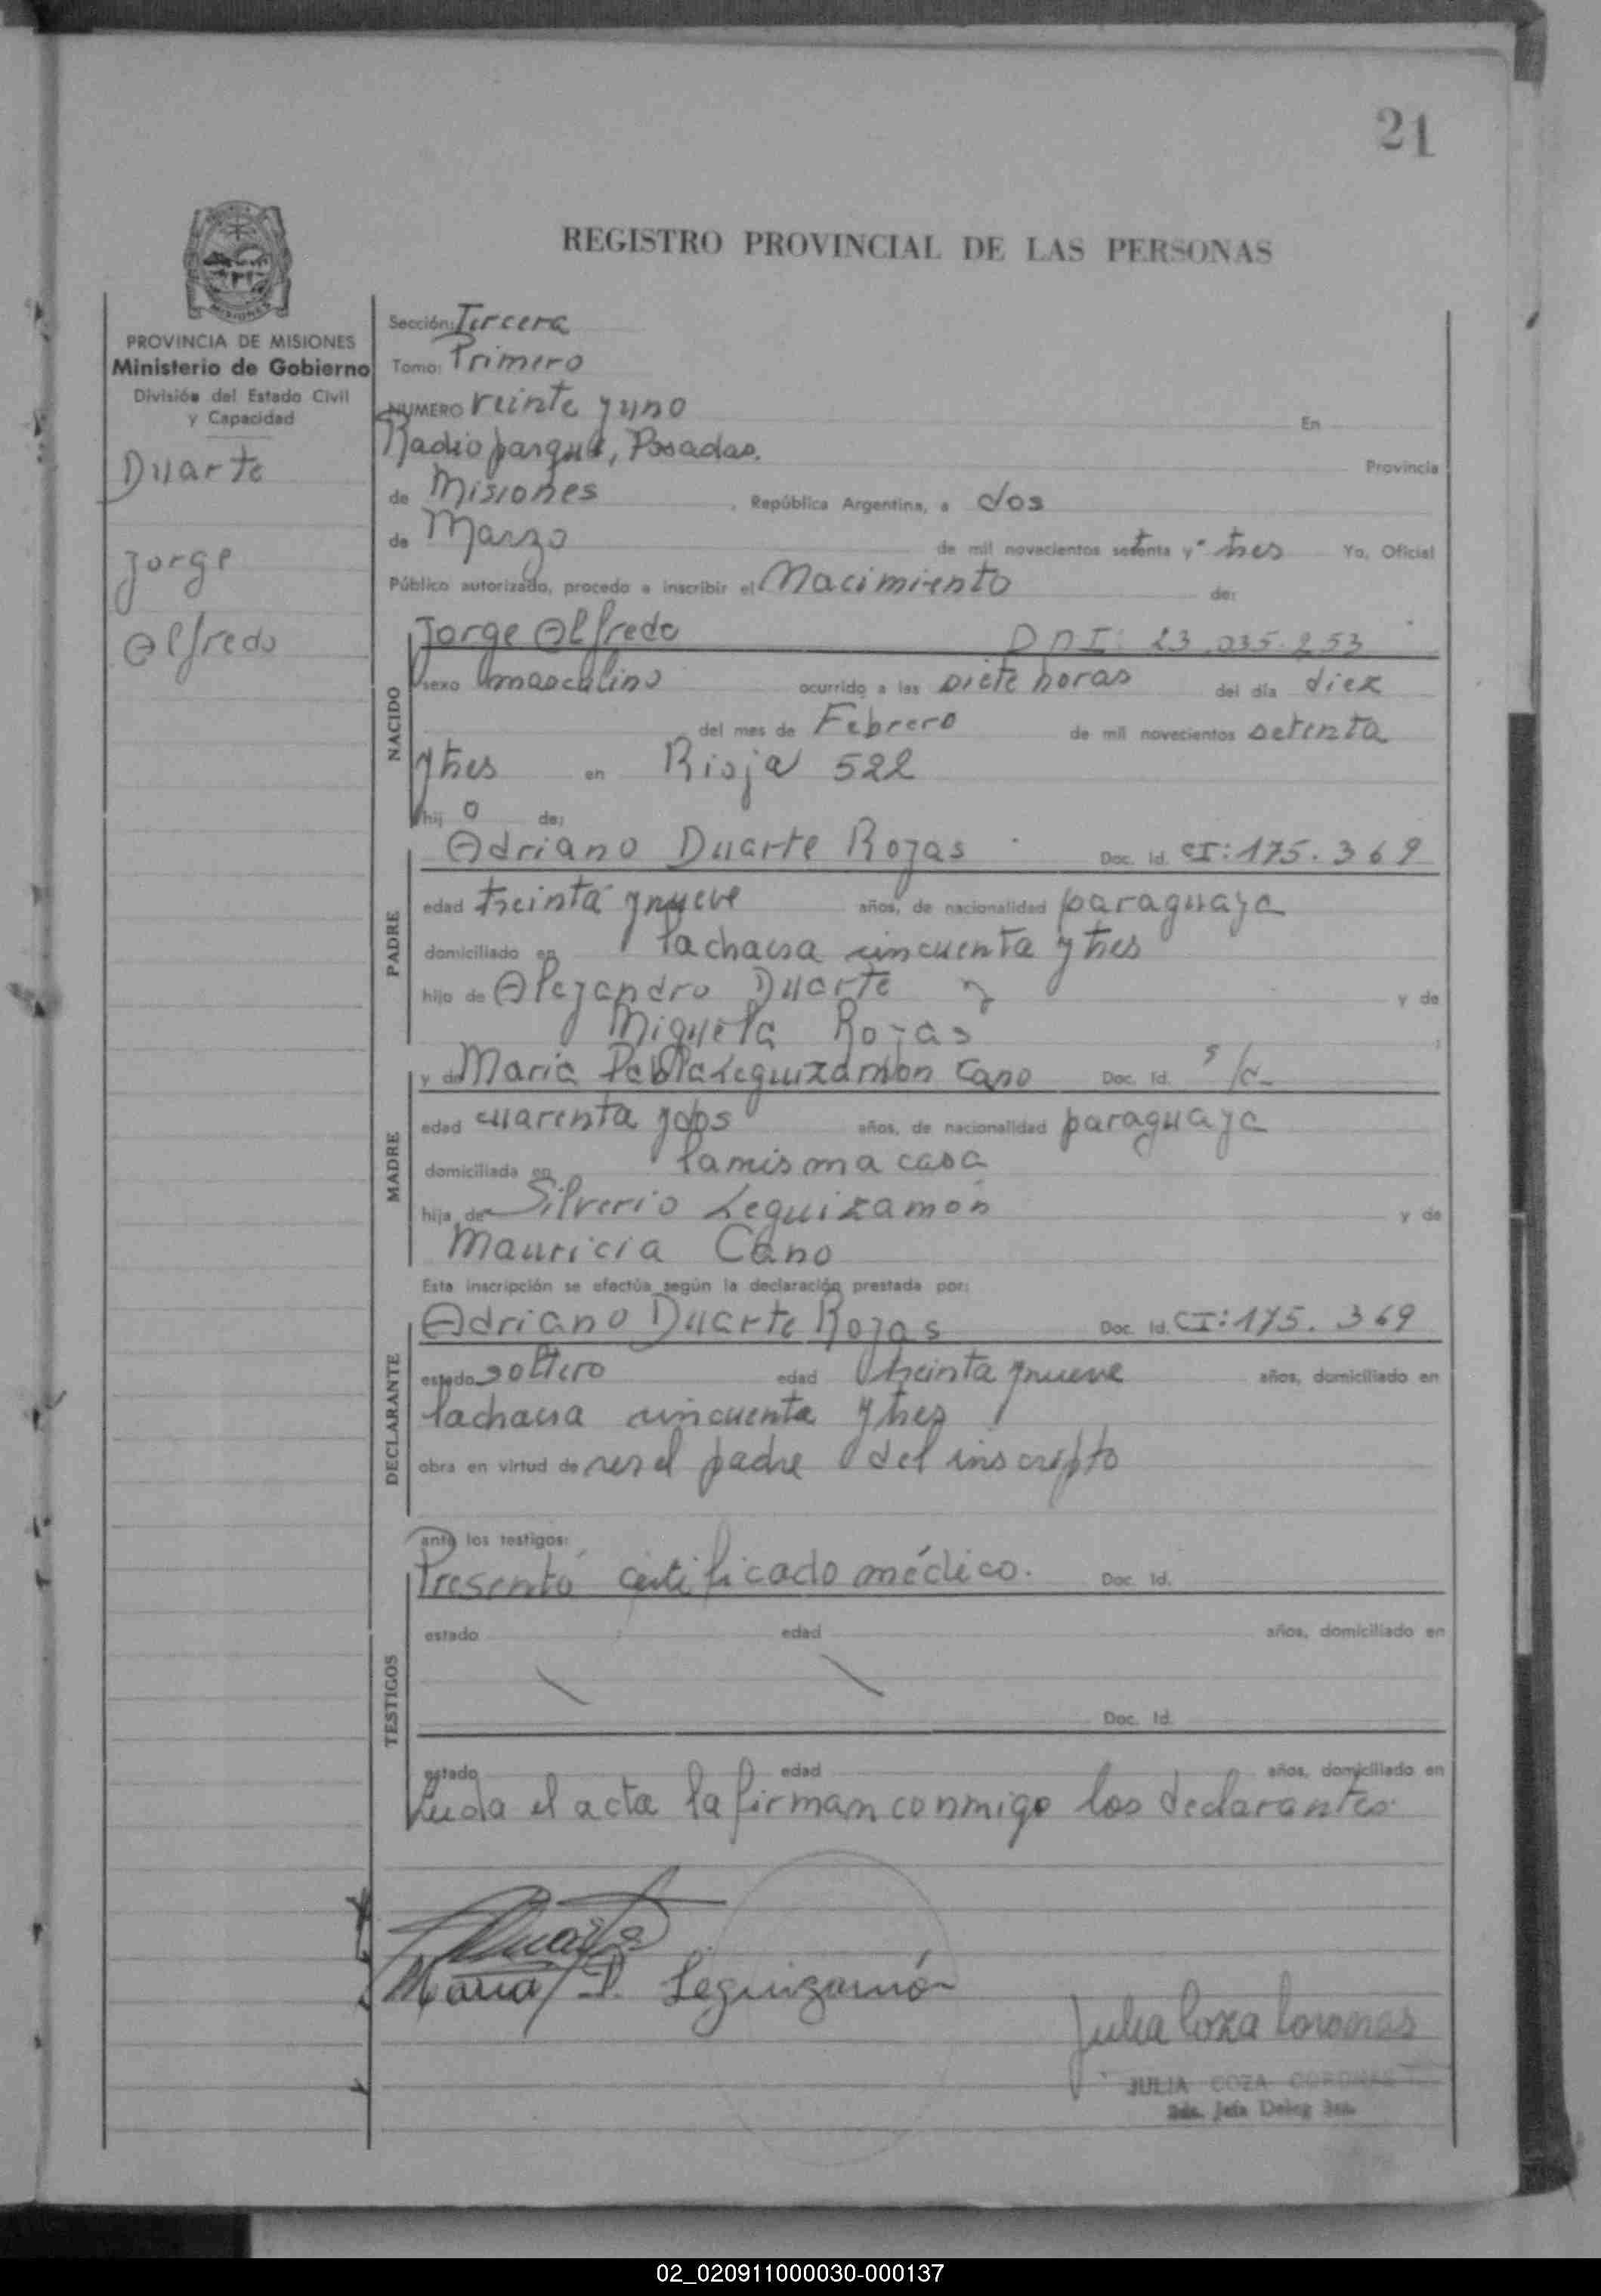 21
REGISTRO PROVINCIAL DE LAS PERSONAS
MISIONES
PROVINCIA DE MISIONES
Ministerio de Gobierno
División del Estado Civil
y Capacidad
Duarte
Jorge
Alfredo
Sección: Tercera
Tomo: Primero
NUMERO veinte y uno En
Radio parque, Posadas. Provincia
de Misiones, República Argentina, a dos
de Marzo de mil novecientos setenta y tres Yo, Oficial
Público autorizado, procedo a inscribir el Nacimiento de:
NACIDO
Jorge Alfredo DNI: 23.035.253
sexo masculino ocurrido a las siete horas del día diez
del mes de Febrero de mil novecientos setenta
y tres en Rioja 522
hijo de:
PADRE
Adriano Duarte Rojas Doc. Id. CI: 175.369
edad treinta y nueve años, de nacionalidad paraguaya
domiciliado en la chacra cincuenta y tres
hijo de Alejandro Duarte y y de
Miguela Rojas
MADRE
y de Maria Pabla Leguizamón Cano Doc. Id. s/c
edad cuarenta y dos años, de nacionalidad paraguaya
domiciliada en la misma casa
hija de Silverio Leguizamón y de
Mauricia Cano
Esta inscripción se efectúa según la declaración prestada por:
DECLARANTE
Adriano Duarte Rojas Doc. Id. CI: 175.369
estado soltero edad treinta y nueve años, domiciliado en
la chacra cincuenta y tres
obra en virtud de ser el padre del inscripto
ante los testigos:
TESTIGOS
Presentó certificado médico. Doc. Id.
estado edad años, domiciliado en
Doc. Id.
estado edad años, domiciliado en
Leída el acta la firman conmigo los declarantes
Duarte
Maria P. Leguizamón
Julia Coza Coronas
JULIA COZA CORONAS
02_020911000030-000137